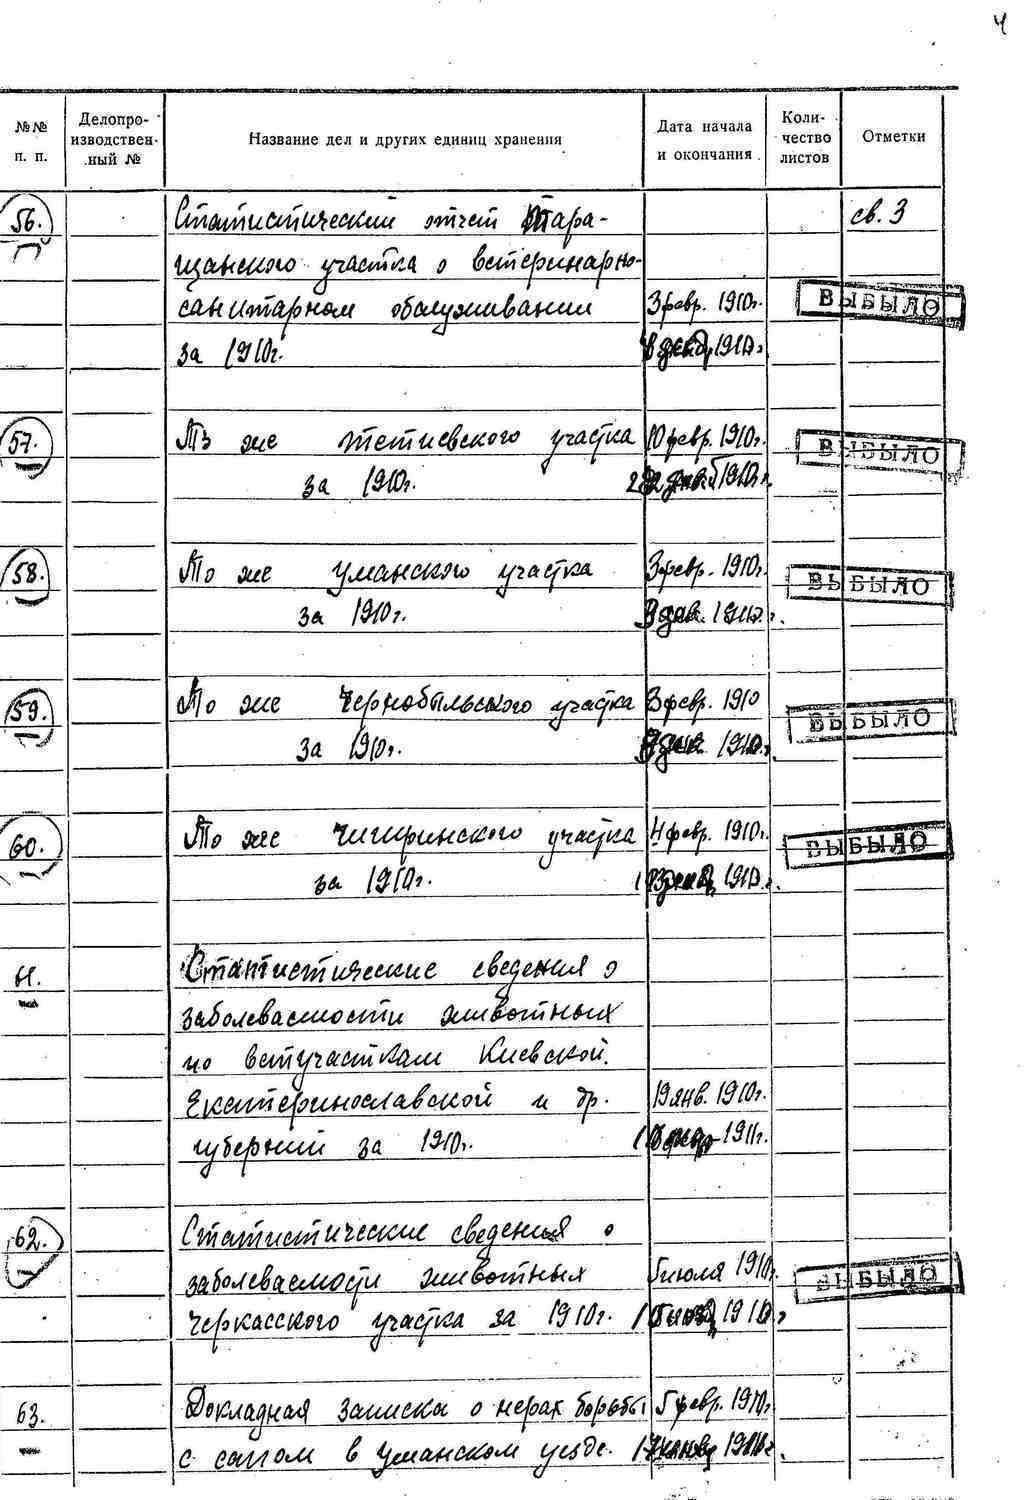 4
№№ п. п.
Делопро-изводствен-ный №
Название дел и других единиц хранения
Дата начала и окончания
Коли-чество листов
Отметки
56. Статистический отчет Тара- св. 3
щанского участка о ветеринарно-
санитарном обслуживании 3 февр. 1910г. ВЫБЫЛО
за 1910г. 1910г.
57. То же тетиевского участка 10 февр. 1910г. ВЫБЫЛО
за 1910г. 1910г.
58. То же уманского участка 3 февр. 1910г. ВЫБЫЛО
за 1910г.
59. То же Чернобыльского участка 3 февр. 1910 ВЫБЫЛО
за 1910г. 1910г.
60. То же чигиринского участка 4 февр. 1910г. ВЫБЫЛО
за 1910г. 1910г.
61. Статистические сведения о
заболеваемости животных
по ветучасткам Киевской.
Екатеринославской и др. 19 янв. 1910г.
губерний за 1910г. 1911г.
62. Статистические сведения о
заболеваемости животных июля 1910г. ВЫБЫЛО
черкасского участка за 1910г. 1910г.
63. Докладная записка о мерах борьбы 5 февр. 1910г.
с сапом в Уманском уезде.